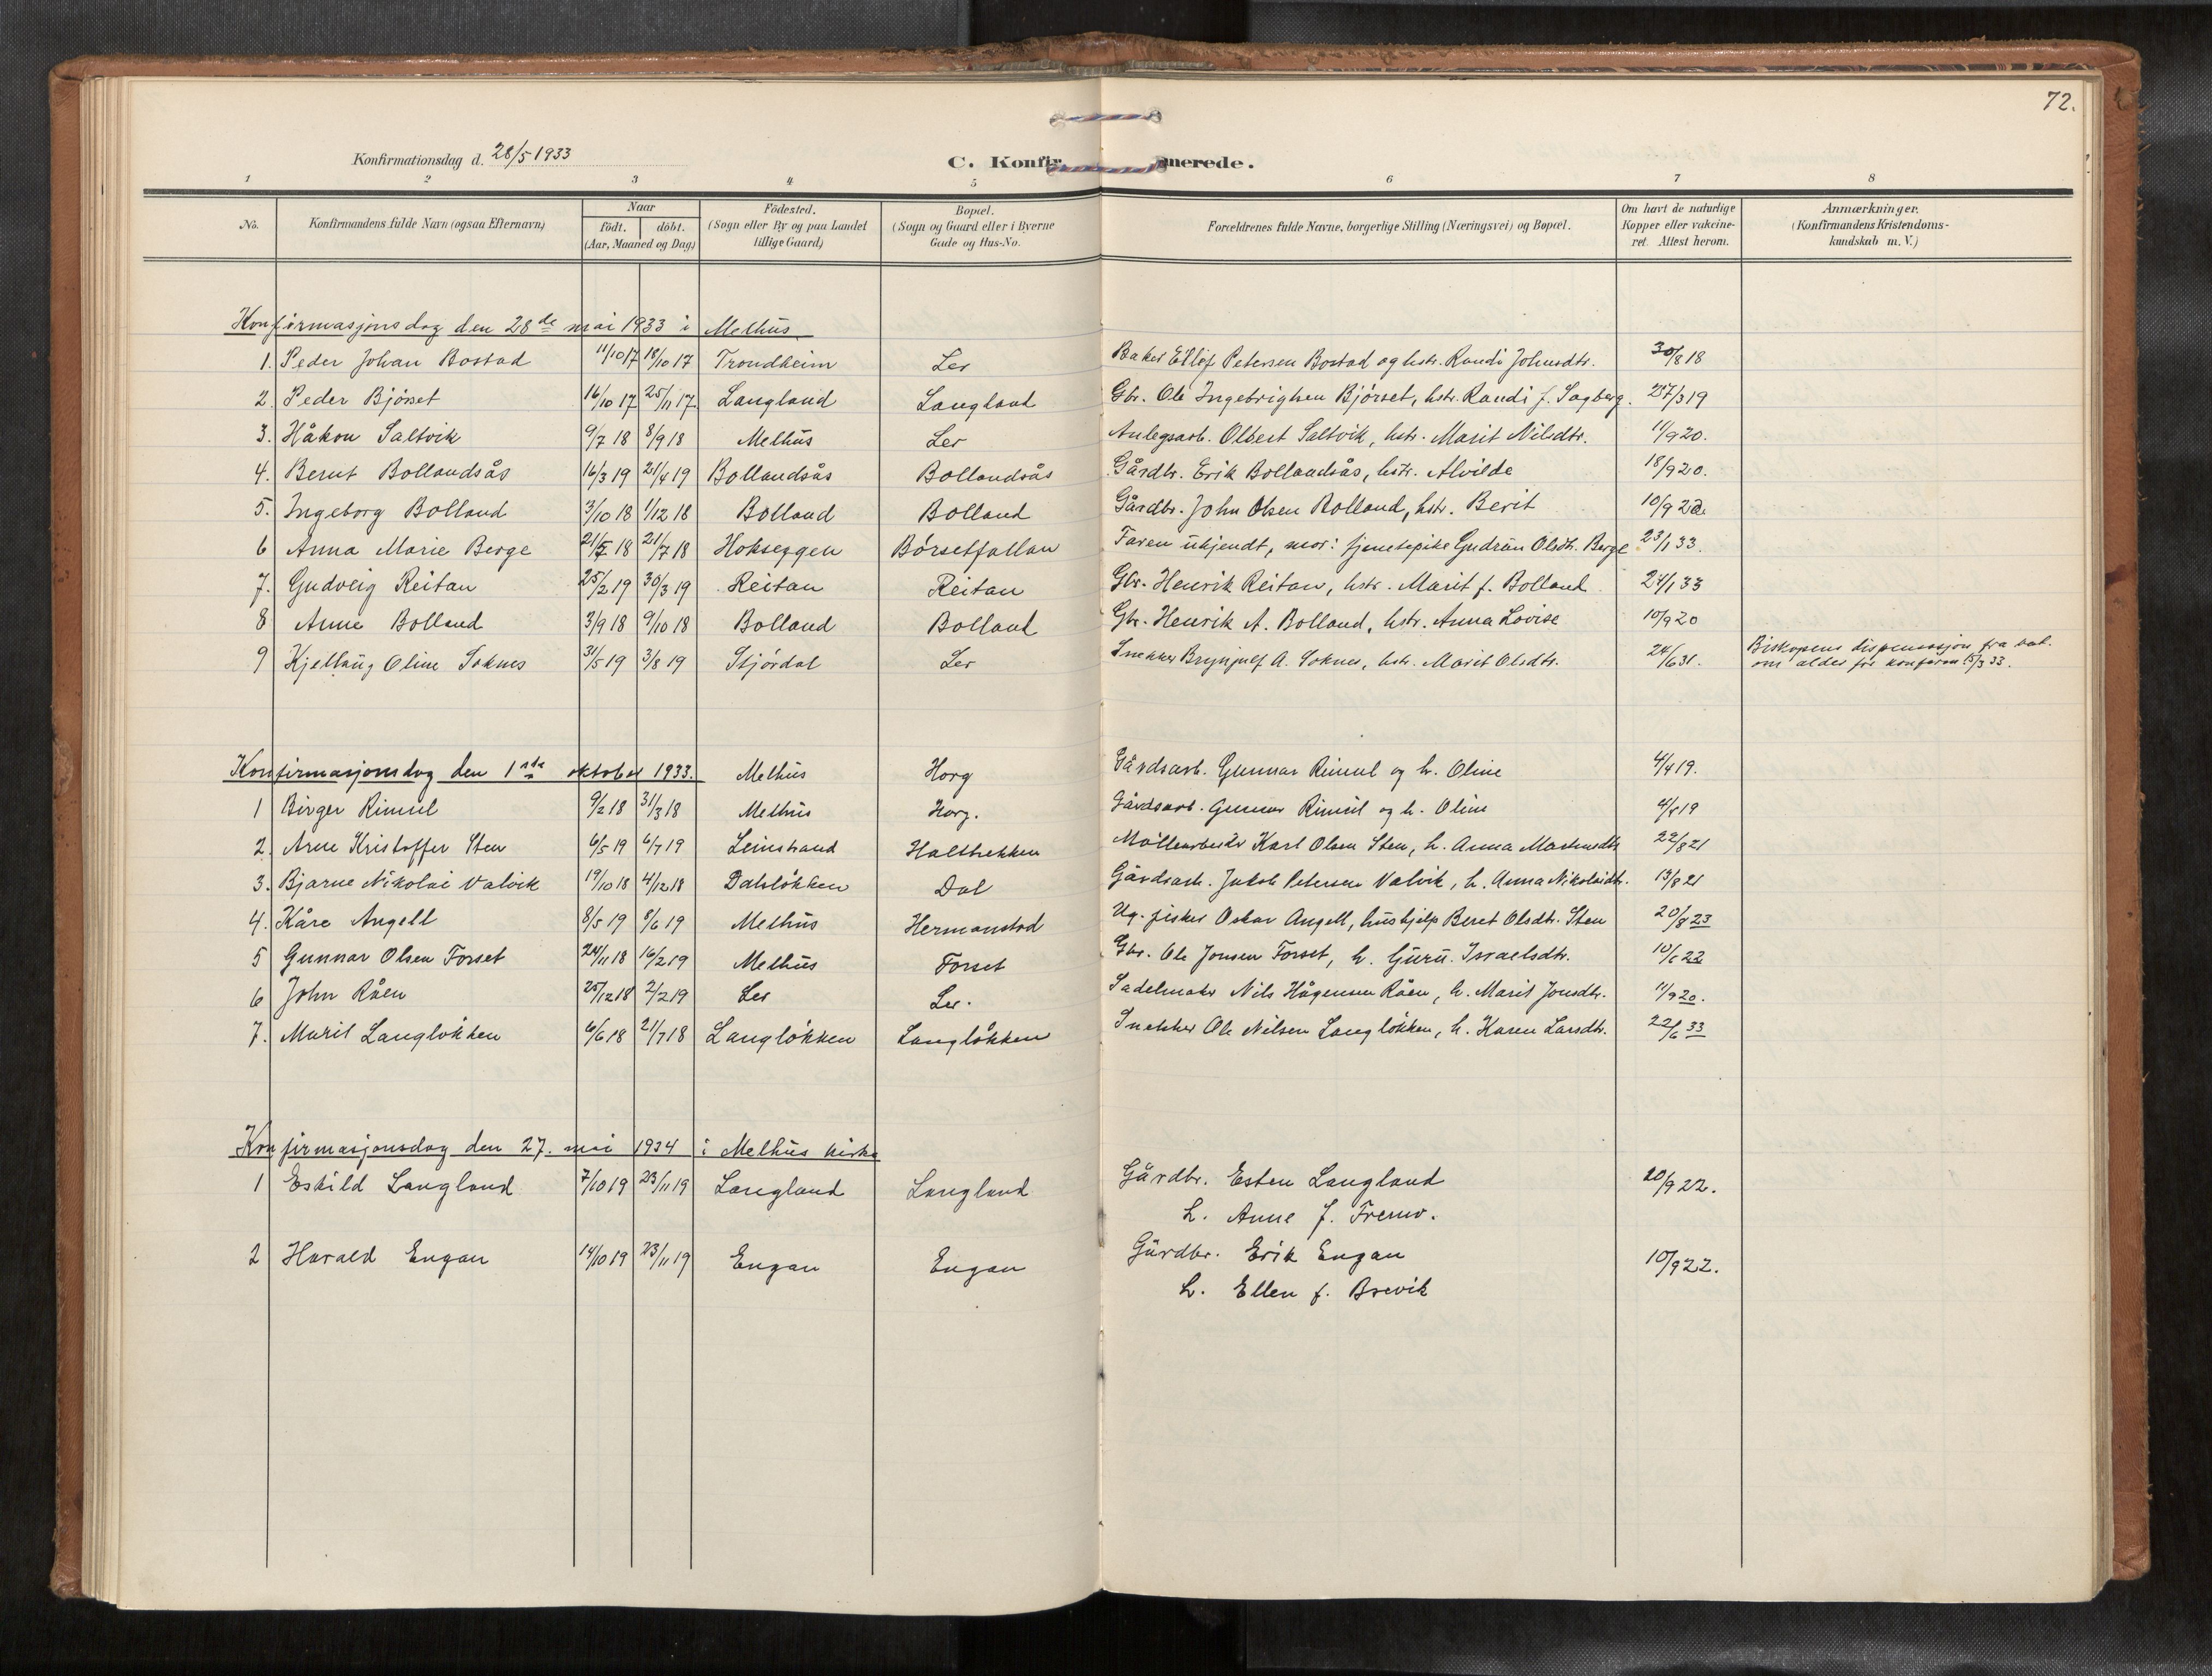 72.
Konfirmationsdag d. 28/5 1933
C. Konfir merede.
1 2 3 4 5 6 7 8
No. Konfirmandens fulde Navn (ogsaa Efternavn) Naar født. døbt. (Aar, Maaned og Dag) Födested. (Sogn eller By og paa Landet tillige Gaard) Bopæl. (Sogn og Gaard eller i Byerne Gade og Hus-No. Forældrenes fulde Navne, borgerlige Stilling (Næringsvei) og Bopæl. Om havt de naturlige Kopper eller vakcineret. Attest herom. Anmærkninger. (Konfirmandens Kristendomskundskab m. V.)
Konfirmasjonsdag den 28de mai 1933 i Melhus.
1. Peder Johan Bostad 11/10 17 18/10 17 Trondheim Ler Baker Petersen Bostad og hstr. Randi Johnsdtr. 30/8 18
2. Peder Bjørset 16/10 17 25/11 17 Langland Langland Gbr. Ole Ingebrigtsen Bjørset, hstr. Randi f. Sagberg. 27/3 19
3. Håkon Saltvik 9/7 18 8/9 18 Melhus Ler Anlegsarb. Olbert Saltvik, hstr. Marit Nilsdtr. 11/9 20.
4. Bernt Bollandsås 16/3 19 21/4 19 Bollandsås Bollandsås Gårdbr. Erik Bollandsås, hstr. Alvilde 18/9 20.
5. Ingeborg Bolland 3/10 18 1/12 18 Bolland Bolland Gårdbr. John Olsen Bolland, hstr. Berit 10/9 20.
6 Anna Marie Berge 21/5 18 21/7 18 Hokseggen Børsetfallan Faren ukjendt, mor: tjenestepike Gudrun Olsdtr. Berge 23/1 33.
7. Gudveig Reitan 25/2 19 30/3 19 Reitan Reitan Gbr. Henrik Reitan, hstr. Marit f. Bolland 24/1 33
8 Anne Bolland 3/9 18 9/10 18 Bolland Bolland Gbr. Henrik A. Bolland, hstr. Anna Lovise 10/9 20
9 Kjellaug Oline Soknes 31/5 19 3/8 19 Stjørdal Ler Snekker Brynjulf A. Soknes, hstr. Marit Olsdtr. 24/6 31. Biskopens dispensasjon fra
om alder for konfirm. 15/3 33.
Konfirmasjonsdag den 1ste oktober 1933. Melhus Horg Gårdsarb. Gunnar Rimul og h. Oline 4/4 19.
1 Birger Rimul 9/2 18 31/3 18 Melhus Horg. Gårdsarb. Gunnar Rimul og h. Oline 4/4 19
2. Arne Kristoffer Sten 6/5 19 6/7 19 Leinstrand Haltbrekken Møllearbeider Karl Olsen Sten, h. Anna Martinsdtr 22/8 21
3. Bjarne Nikolai Valvik 19/10 18 4/12 18 Dalsløkken Dal Gårdsarb. Jakob Petersen Valvik, h. Anna Nikolaidtr. 13/8 21
4. Kåre Angell 8/5 19 8/6 19 Melhus Hermanstad Ug. fisker Oskar Angell, hushjelp Beret Olsdtr. Sten 20/8 23
5 Gunnar Olsen Forset 24/11 18 16/2 19 Melhus Forset Gbr. Ole Jonsen Forset, h. Guru Israelsdtr. 10/ 22
6 John Råen 25/12 18 2/2 19 Ler Ler. Sadelmaker Nils Hågensen Råen, h. Marit Jonsdtr. 11/9 20.
7. Marit Langløkken 6/6 18 21/7 18 Langløkken Langløkken Snekker Ole Nilsen Langløkken, h. Karen Larsdtr. 22/6 33
Konfirmasjonsdag den 27. mai 1934 i Melhus kirke
1 Eskild Langland 7/10 19 23/11 19 Langland Langland Gårdbr. Esten Langland 20/9 22.
h. Anne f. Fremo.
2 Harald Engan 14/10 19 23/11 19 Engan Engan Gårdbr. Erik Engan 10/9 22.
h. Ellen f. Brevik